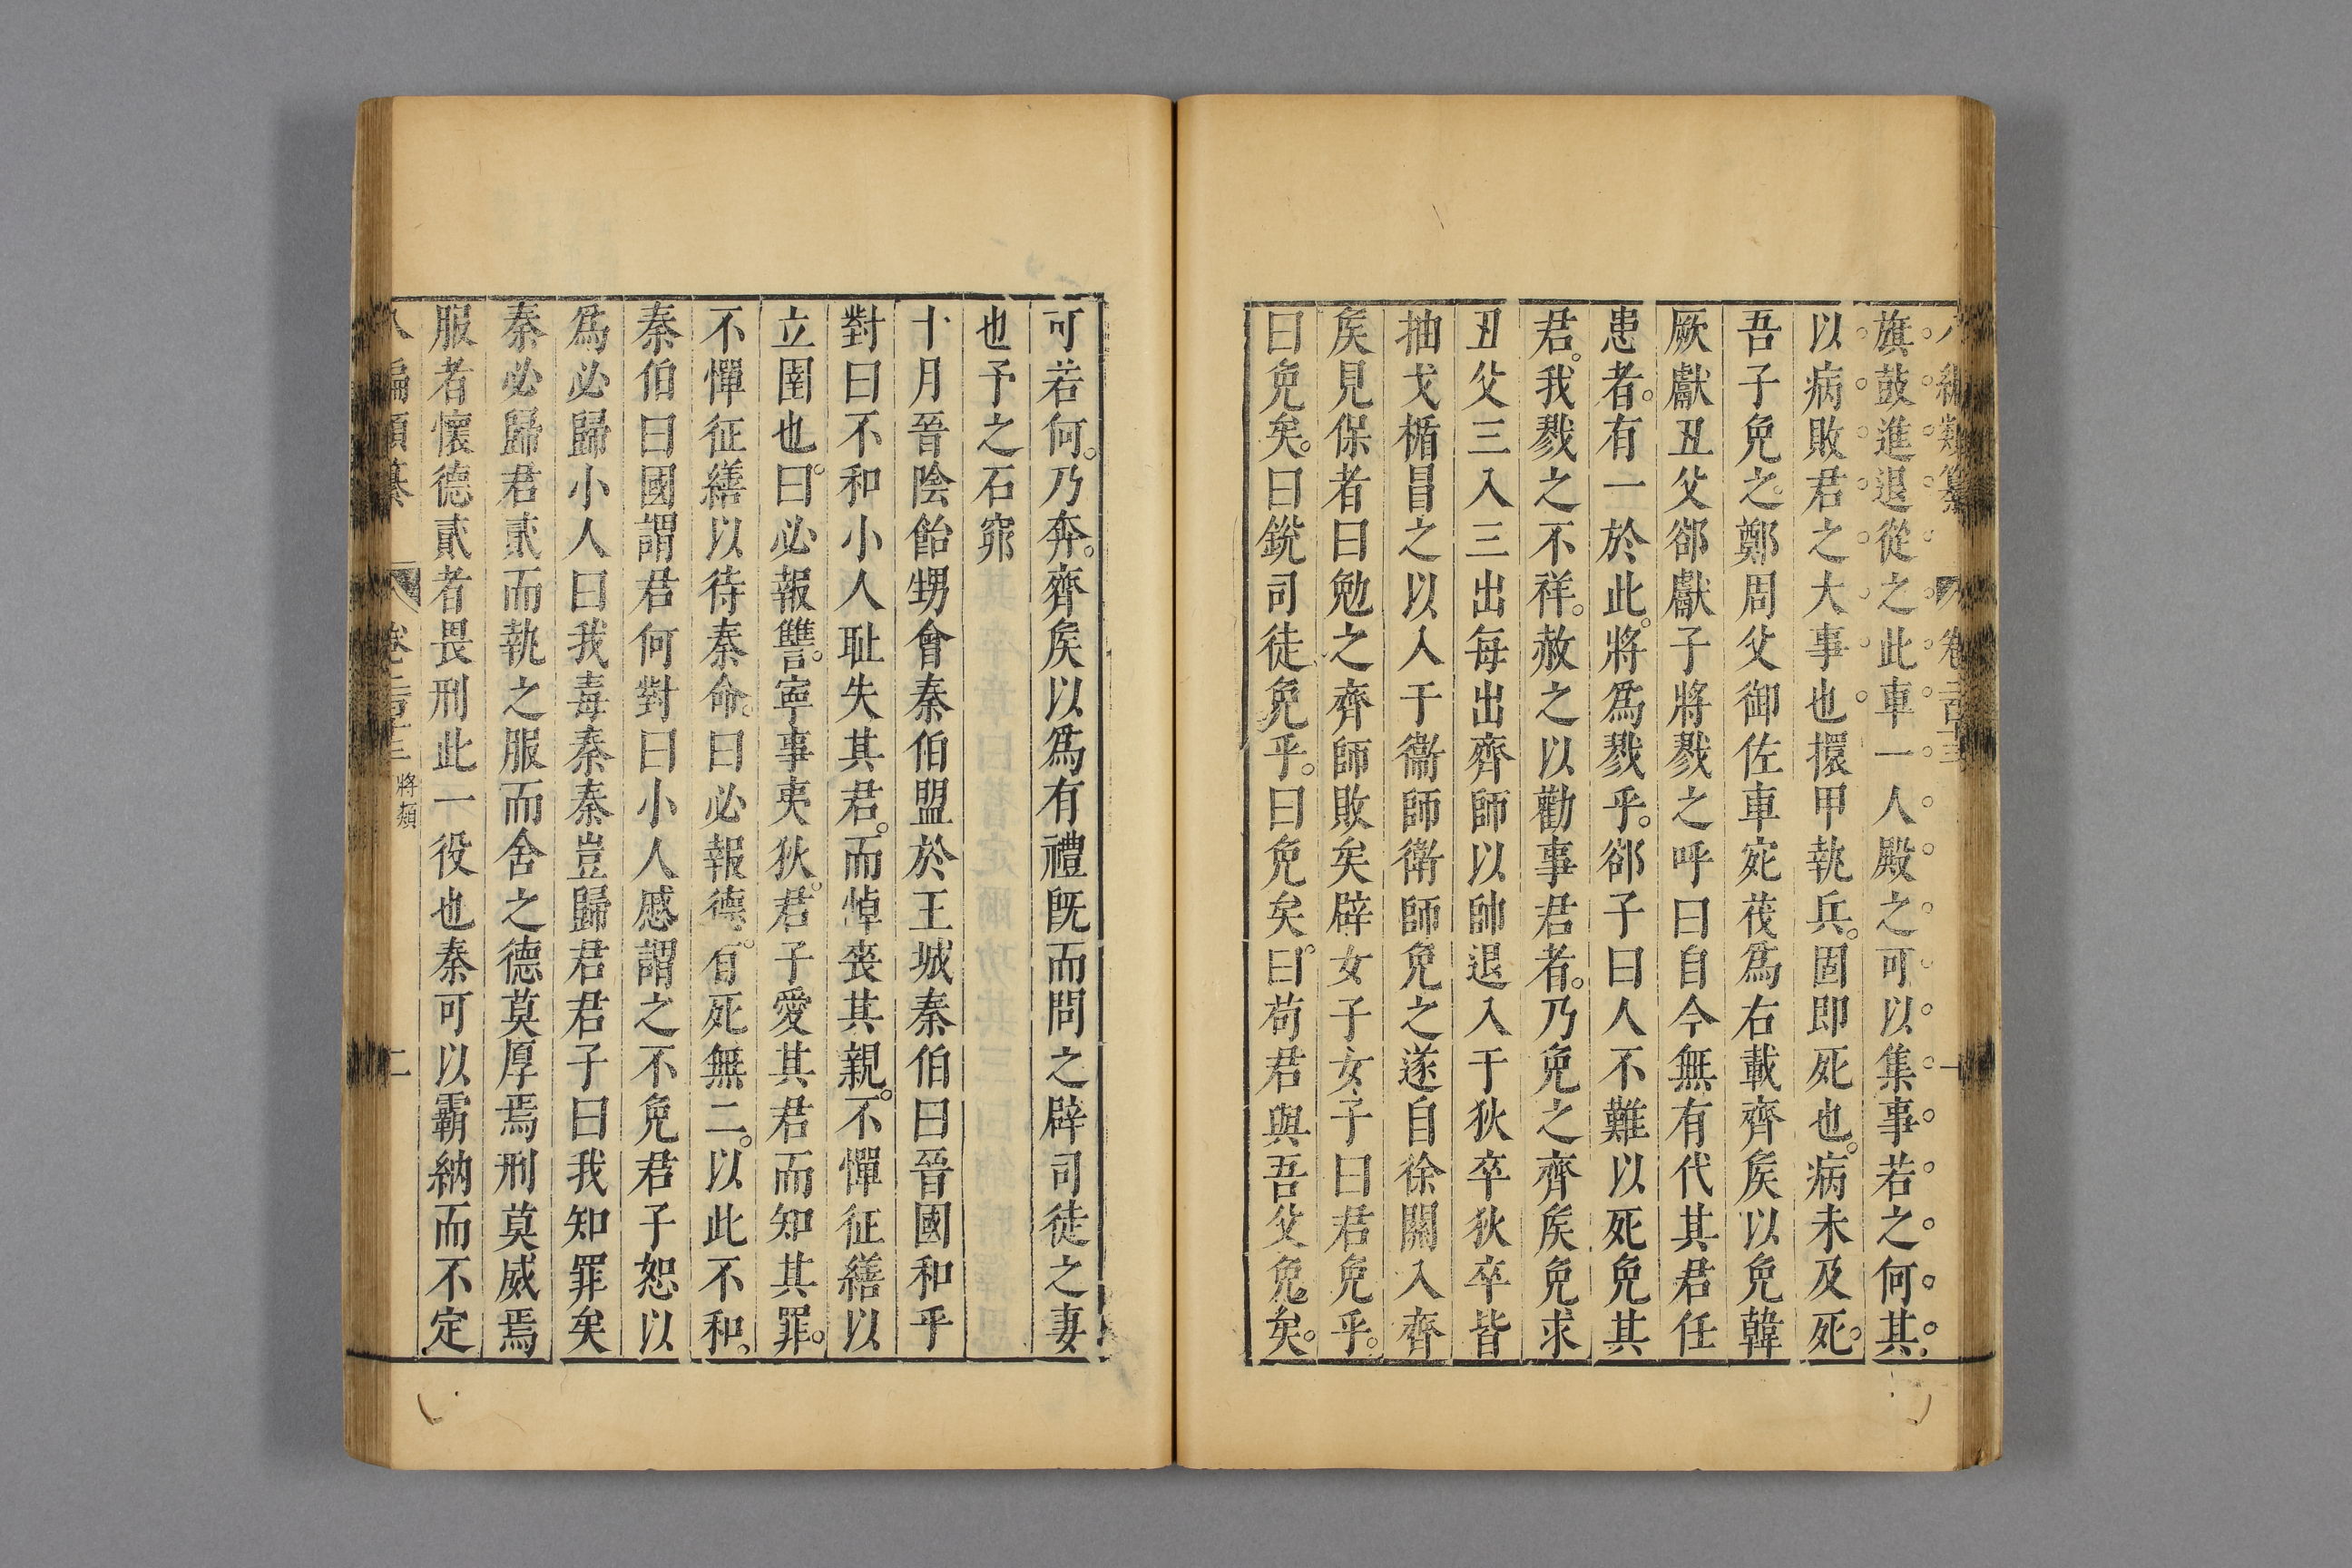 八編類纂 卷一百十三 一
旗鼓進退從之此車一人殿之可以集事若之何其
以病敗君之大事也擐甲執兵固即死也病未及死
吾子免之鄭周父御佐車宛茷爲右載齊矦以免韓
厥獻丑父郤獻子將戮之呼曰自今無有代其君任
患者有一於此將爲戮乎郤子曰人不難以死免其
君我戮之不祥赦之以勸事君者乃免之齊矦免求
丑父三入三出每出齊師以帥退入于狄卒狄卒皆
抽戈楯冒之以入于衞師衛師免之遂自徐關入齊
矦見保者曰勉之齊師敗矣辟女子女子曰君免乎
曰免矣曰銳司徒免乎曰免矣曰苟君與吾父免矣
可若何乃奔齊矦以爲有禮既而問之辟司徒之妻
也予之石窌
十月晉陰飴甥會秦伯盟於王城秦伯曰晉國和乎
對曰不和小人耻失其君而悼喪其親不憚征繕以
立圉也曰必報讐寧事夷狄君子愛其君而知其罪
不憚征繕以待秦命曰必報德有死無二以此不和
秦伯曰國謂君何對曰小人慼謂之不免君子恕以
爲必歸小人曰我毒秦秦豈歸君君子曰我知罪矣
秦必歸君貳而執之服而舍之德莫厚焉刑莫威焉
服者懷德貳者畏刑此一役也秦可以霸納而不定
八編類纂 卷一百十三 將類 二